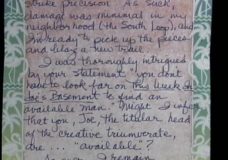 strike precision. As such,
damage was minimal in my
neighborhood (the South Loop), and
I'm ready to pick up the pieces
and blaze a new trail.
I was thoroughly intrigued
by your statement "you don't
have to look far on this week in
Joe's Basement to find an
available man." Might I infer
that you, Joe, the titular head
of the creative triumvirate,
are ... "available"?
I remain